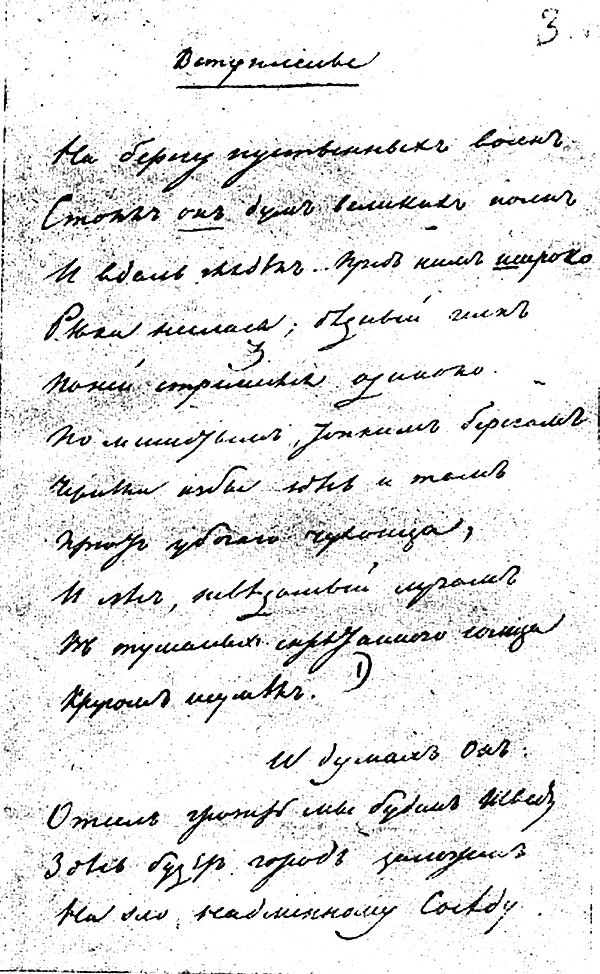 3
Вступленье
На берегу пустынныхъ волнъ
Стоялъ онъ думъ великихъ полнъ
И вдаль глядѣлъ. Предъ нимъ широко
Рѣка неслася; бѣдный челнъ
По ней стремился одиноко.
По мшистымъ, топкимъ берегамъ
Чернѣли избы здѣсь и тамъ
Пріютъ убогаго чухонца,
И лѣсъ, невѣдомый лучамъ
Въ туманѣ спрятаннаго солнца
Кругомъ шумѣлъ. 1)
И думалъ Онъ.
Отсель грозить мы будемъ Шведу
Здѣсь будетъ городъ заложенъ
На зло надменному Сосѣду.